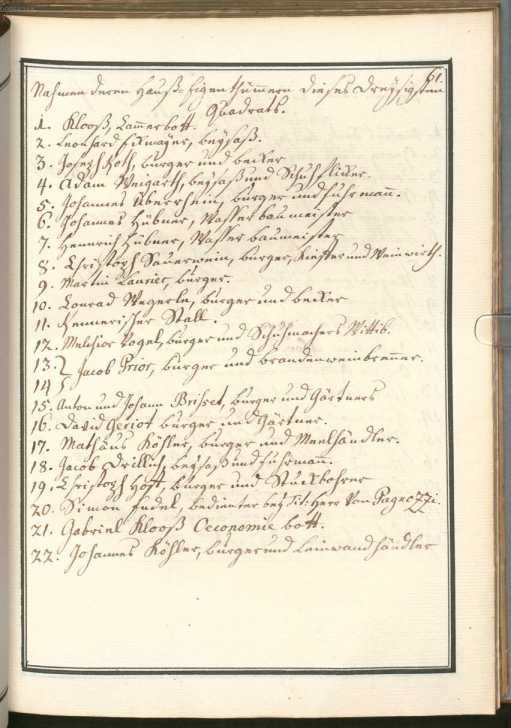 61.
Nahmen deren Hauß-Eigenthümmern dieses Dreysigsten
Quadrats.
1. Klooß, Cammerbott.
2. Leonhard Eckmayer, beysaß.
3. Joseph Roth, burger und becker
4. Adam Weigarth, beysaß und Schuhflicker.
5. Johannes Überrhein, burger und fuhrmann.
6. Johannes Hübner, Wasserbaumeister
7. Hennrich Hübner, Wasserbaumeister
8. Christoph Sauerwein, burger, Kieffer und Weinwirth.
9. Martin burger.
10. Conrad Wegerle, burger und becker
11. Stall.
12. Melchior Vogel, burger und Schuhmachers Wittib.
13. } Jacob Prior, burger und brandenweinbrenner.
14 }
15. Anton und Johann Briset, burger und Gärtners
16. David Geriot burger und Gärtner.
17. Mathäus Köhler, burger und Meelhändler.
18. Jacob Drillich, beysaß und fuhrmann.
19. Christoph Höft, burger und Stückbohrer
20. Simon Endel, bedienter bey Tit: Herr Von Pagnozzi.
21. Gabriel Klooß Oeconomie bott.
22. Johannes Köhler, burger und Leinwandhändler